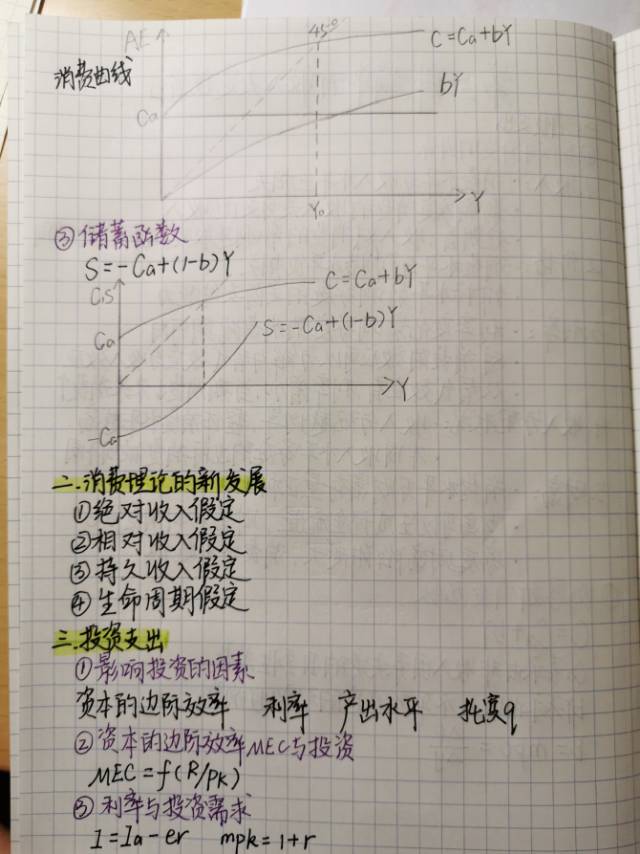 AE
45°
C=Ca+bY
消费曲线
bY
Ca
Y₀
Y
③储蓄函数
S=-Ca+(1-b)Y
C,S
C=Ca+bY
Ca
S=-Ca+(1-b)Y
Y
-Ca
二.消费理论的新发展
①绝对收入假定
②相对收入假定
③持久收入假定
④生命周期假定
三.投资支出
①影响投资的因素
资本的边际效率 利率 产出水平 托宾q
②资本的边际效率MEC与投资
MEC=f(R/PK)
③利率与投资需求
I=Ia-er mpk=1+r